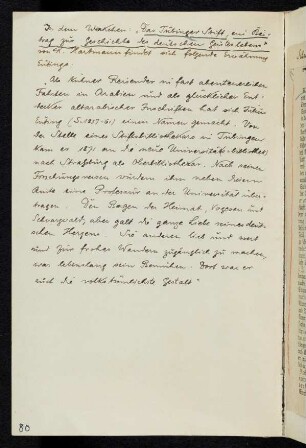 In dem Werkchen: "Das Tübinger Stift, ein Bei-
trag zur Geschichte des deutschen Geisteslebens"
von H. Hartmann findet sich folgende Erwähnung
Eutings:
"Als kühner Reisender in fast abenteuerlichen
Fahrten in Arabien und als glücklicher Ent-
decker altarabischer Inschriften hat sich Julius
Euting (S. 1857-61) einen Namen gemacht. Von
der Stelle eines Stiftsbibliothekars in Tübingen
kam er 1871 an die neue Universitätsbibliothek
nach Straßburg als Oberbibliothekar. Nach seinen
Forschungsreisen wurde ihm neben diesem
Amte eine Professur an der Universität über-
tragen. Den Bergen der Heimat, Vogesen und
Schwarzwald, aber galt die ganze Liebe seines deut-
schen Herzens. Sie anderen lieb und wert
und für frohes Wandern zugänglich zu machen,
war lebenslang sein Bemühen. Dort war er
auch die volkstümlichste Gestalt"
80